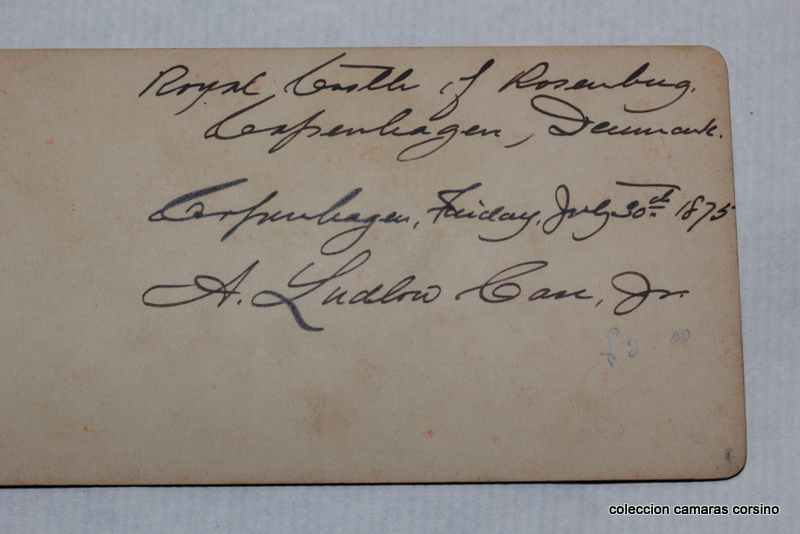 Royal Castle of Rosenburg.
Copenhagen, Denmark.
Copenhagen, Friday, July 30th 1875
A. Ludlow Case, Jr.
£2.00
coleccion camaras corsino